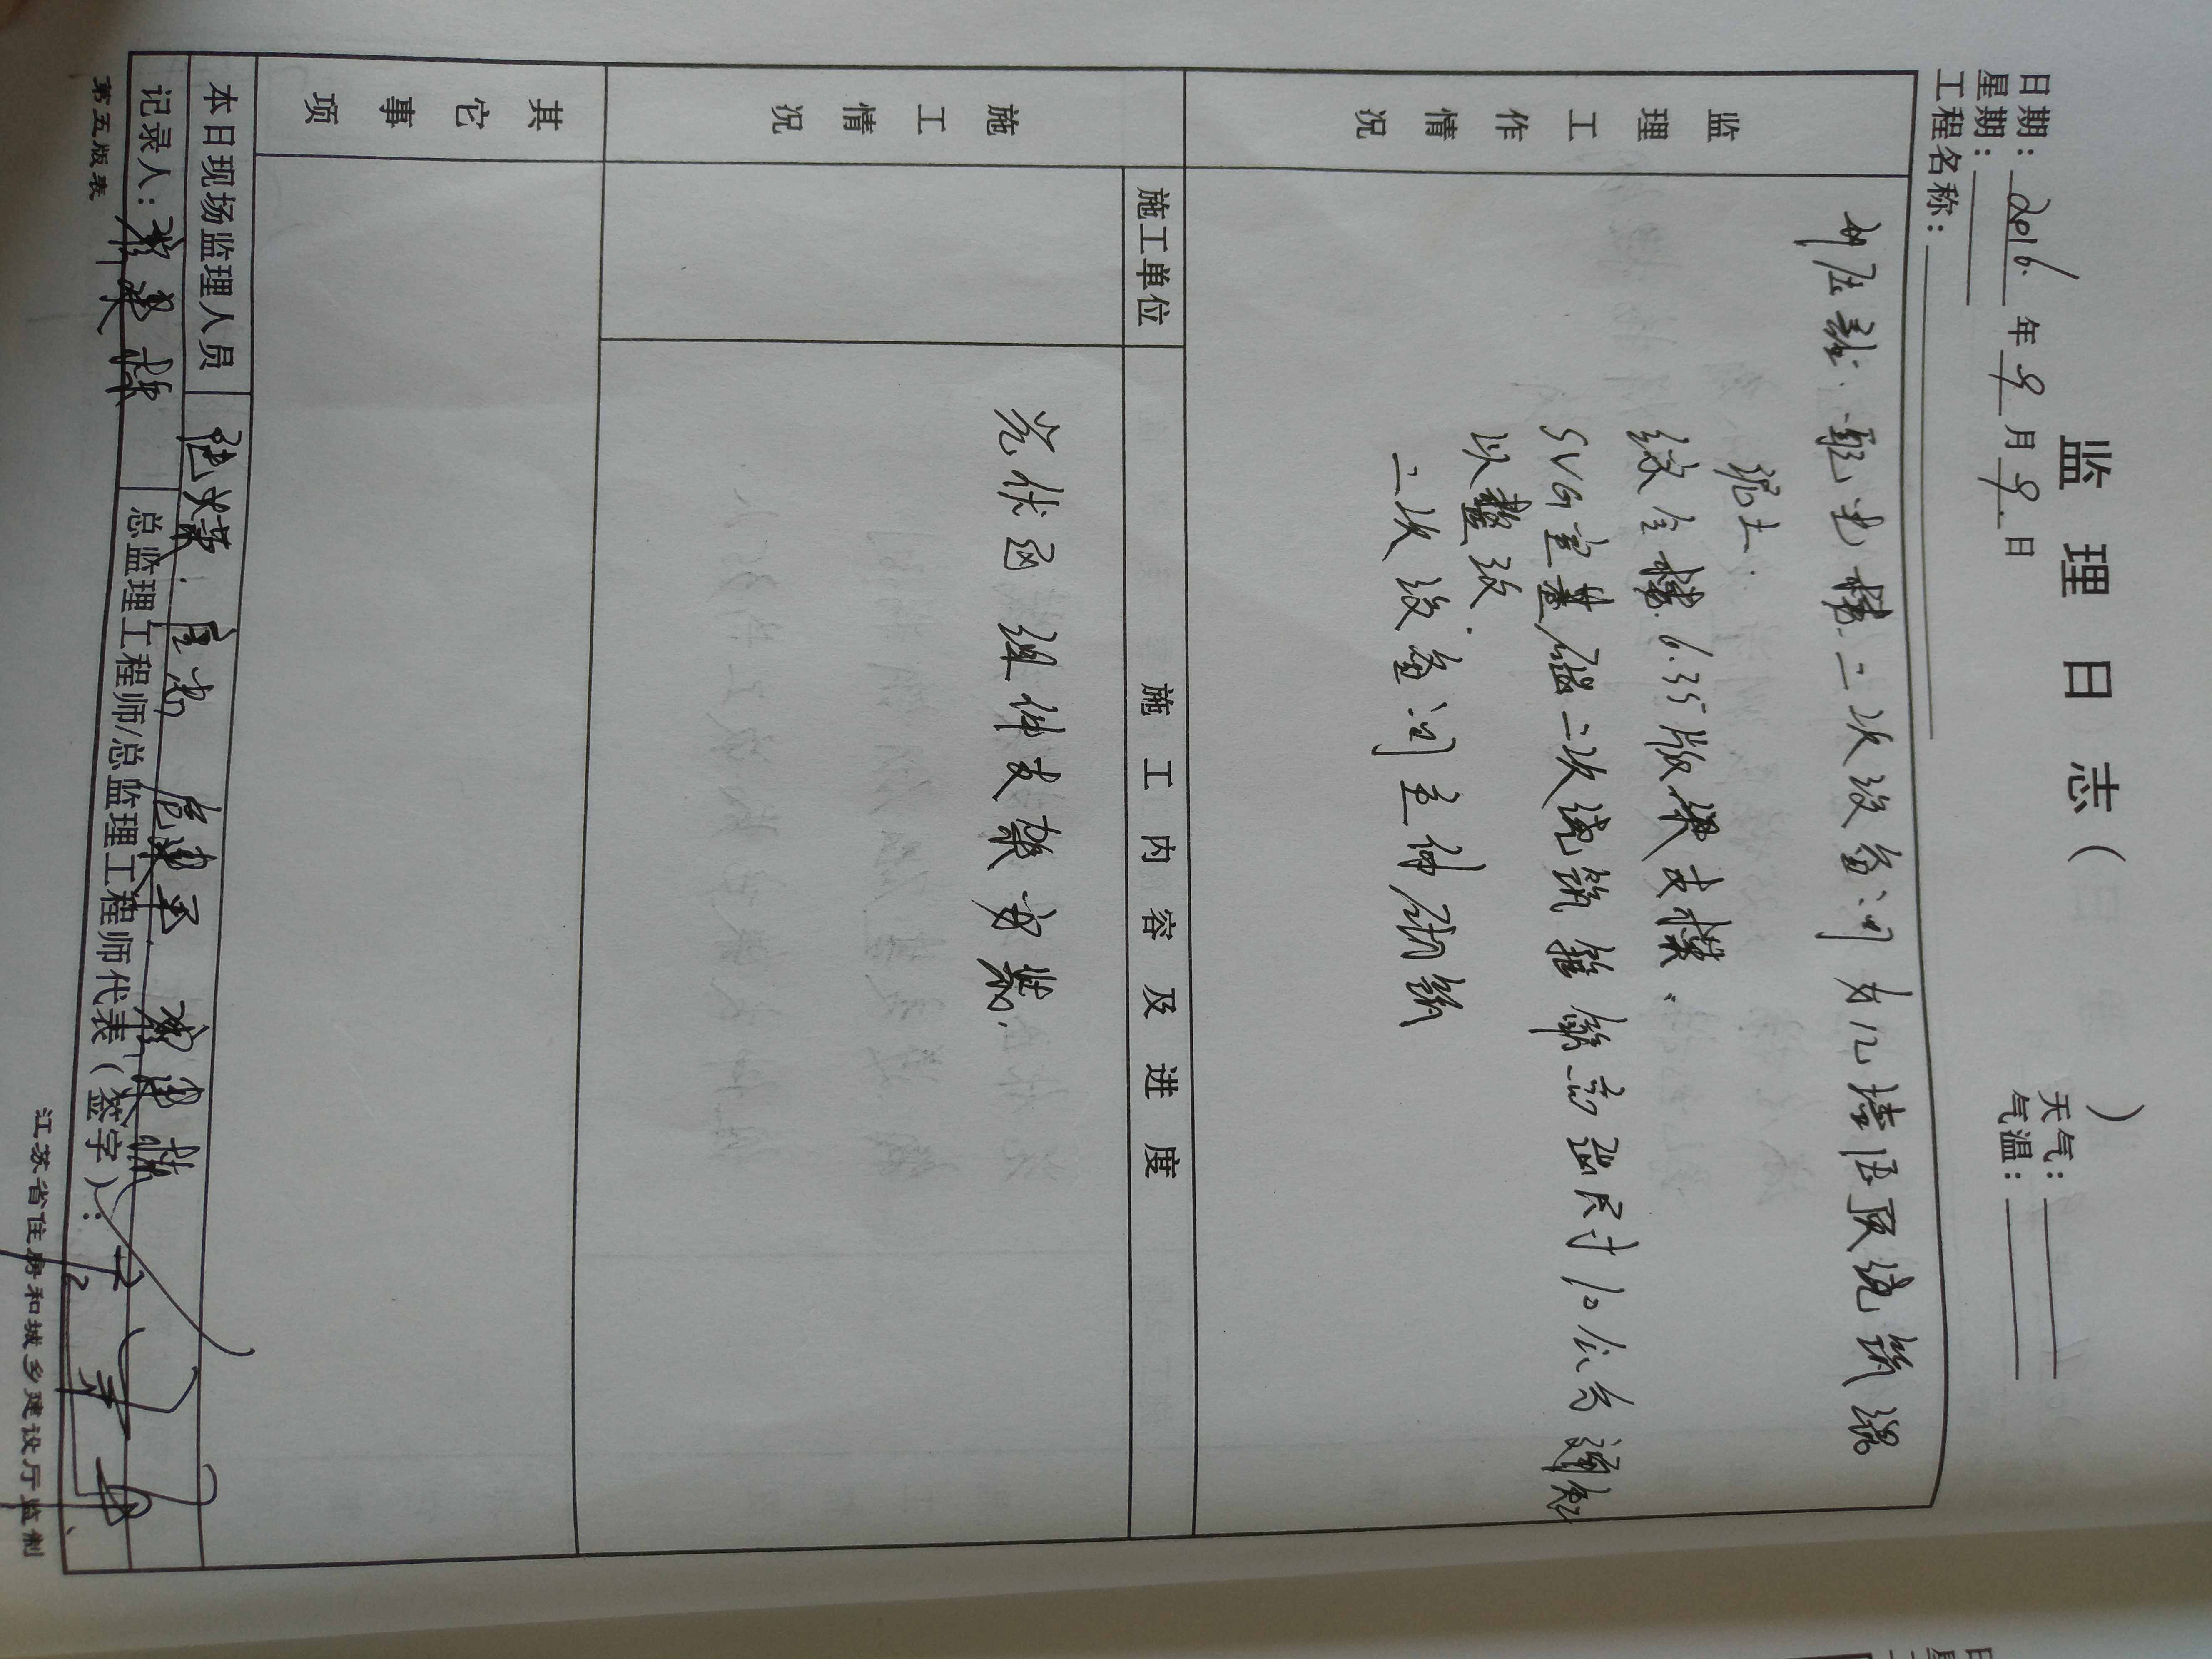 监理日志（ ）
日期：2016.年9月9.日 天气：
星期： 气温：
工程名称：
监理工作情况
升压站：配电楼二次设备间 女儿墙压顶浇筑混
泥土.
综合楼.6.35版梁支模.
SVG室基础二次浇筑 箍 高出尺寸10公分通知
以整改.
二次设备间主体砌筑
施工情况
施工单位 施工内容及进度
光伏区 组件支架安装.
其它事项
本日现场监理人员
记录人： 总监理工程师/总监理工程师代表（签字）：
第五版表 江苏省住房和城乡建设厅监制